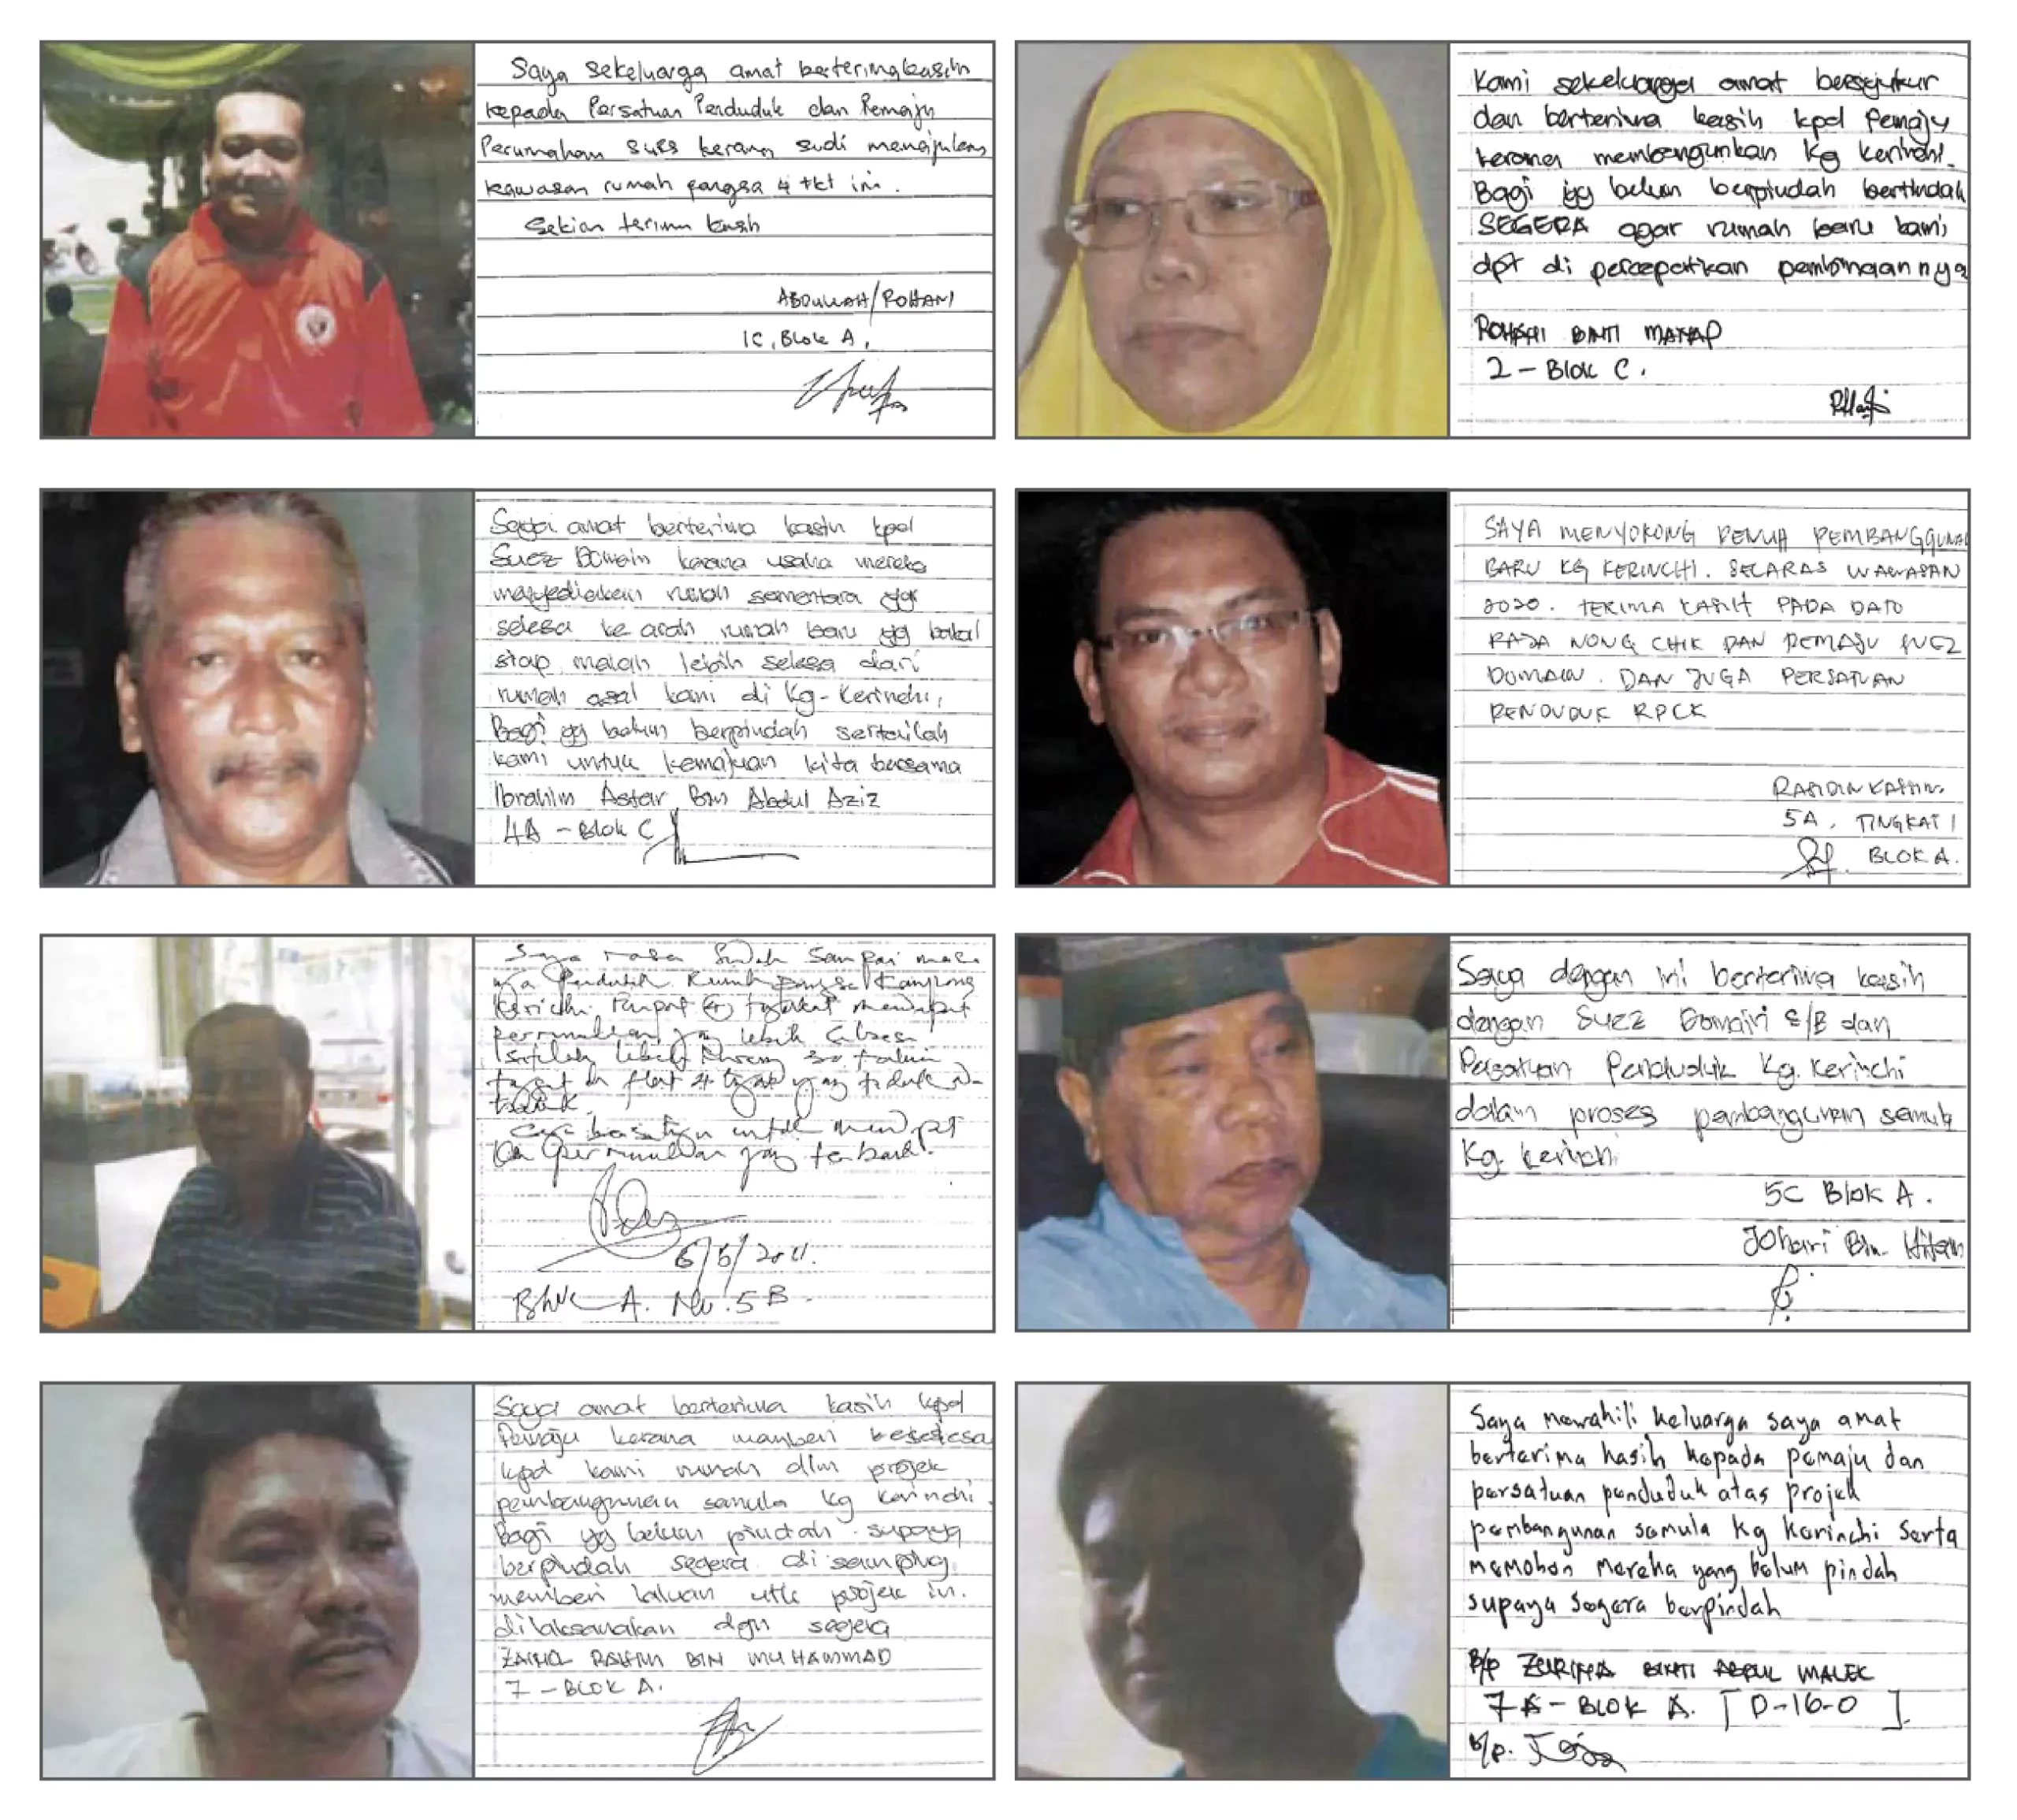 Saya sekeluarga amat berterimakasih
kepada Persatuan Penduduk dan Pemaju
Perumahan SUES kerana sudi menajukan
kawasan rumah pangsa 4 tkt ini.
Sekian terima kasih
ABDULLAH/ROHANI
1C, Blok A,
Kami sekeluarga amat bersyukur
dan berterima kasih kpd Pemaju
kerana membangunkan Kg Kerinchi.
Bagi yg belum berpindah bertindak
SEGERA agar rumah baru kami
dpt di percepatkan pembinaannya
ROHANI BINTI MANAP
2 - Blok C.
Saya amat berterima kasih kpd
Suez Domain kerana usaha mereka
menyediakan rumah sementara yg
selesa ke arah rumah baru yg bakal
siap malah lebih selesa dari
rumah asal kami di Kg-Kerinchi,
Bagi yg belum berpindah sertailah
kami untuk kemajuan kita bersama
Ibrahim Astar Bin Abdul Aziz
4A - Blok C
SAYA MENYOKONG PENUH PEMBANGGUNAN
BARU KG KERINCHI. SELARAS WAWASAN
2020. TERIMA KASIH PADA DATO
RAJA NONG CHIK DAN PEMAJU SUEZ
DOMAIN. DAN JUGA PERSATUAN
PENDUDUK RPCK
5A, TINGKAT 1
BLOK A.
Saya rasa Sudah Sampai masa
Penduduk Rumah pangsa Kampong
Kerichi tingkat mendapat
perumahan yg lebih selesa
lebih
flat 4 yang tidak
untuk
perumahan yang terbaik.
6/6/2011.
Blok A. No. 5B.
Saya dengan ini berterima kasih
dengan Suez Domain S/B dan
Pesatuan Penduduk Kg. Kerinchi
dalam proses pembangunan semula
Kg. Kerinchi
5C Blok A.
Johari Bin Hitam
Saya amat berterima kasih kpd
Pemaju kerana memberi keselesa
kpd kami rumah dlm projek
pembangunan semula kg Kerinchi.
Bagi yg belum pindah supaya
berpindah segera di samping
memberi laluan utk projek ini.
dilaksanakan dgn segera
BIN MUHAMMAD
7 - BLOK A.
Saya mewakili keluarga saya amat
berterima kasih kepada pemaju dan
persatuan penduduk atas projek
pembangunan semula Kg Kerinchi serta
memohon mereka yang belum pindah
supaya segera berpindah
B/P ZURINA BINTI ABDUL MALEK
7A - BLOK A. [D-16-0]
b/p.